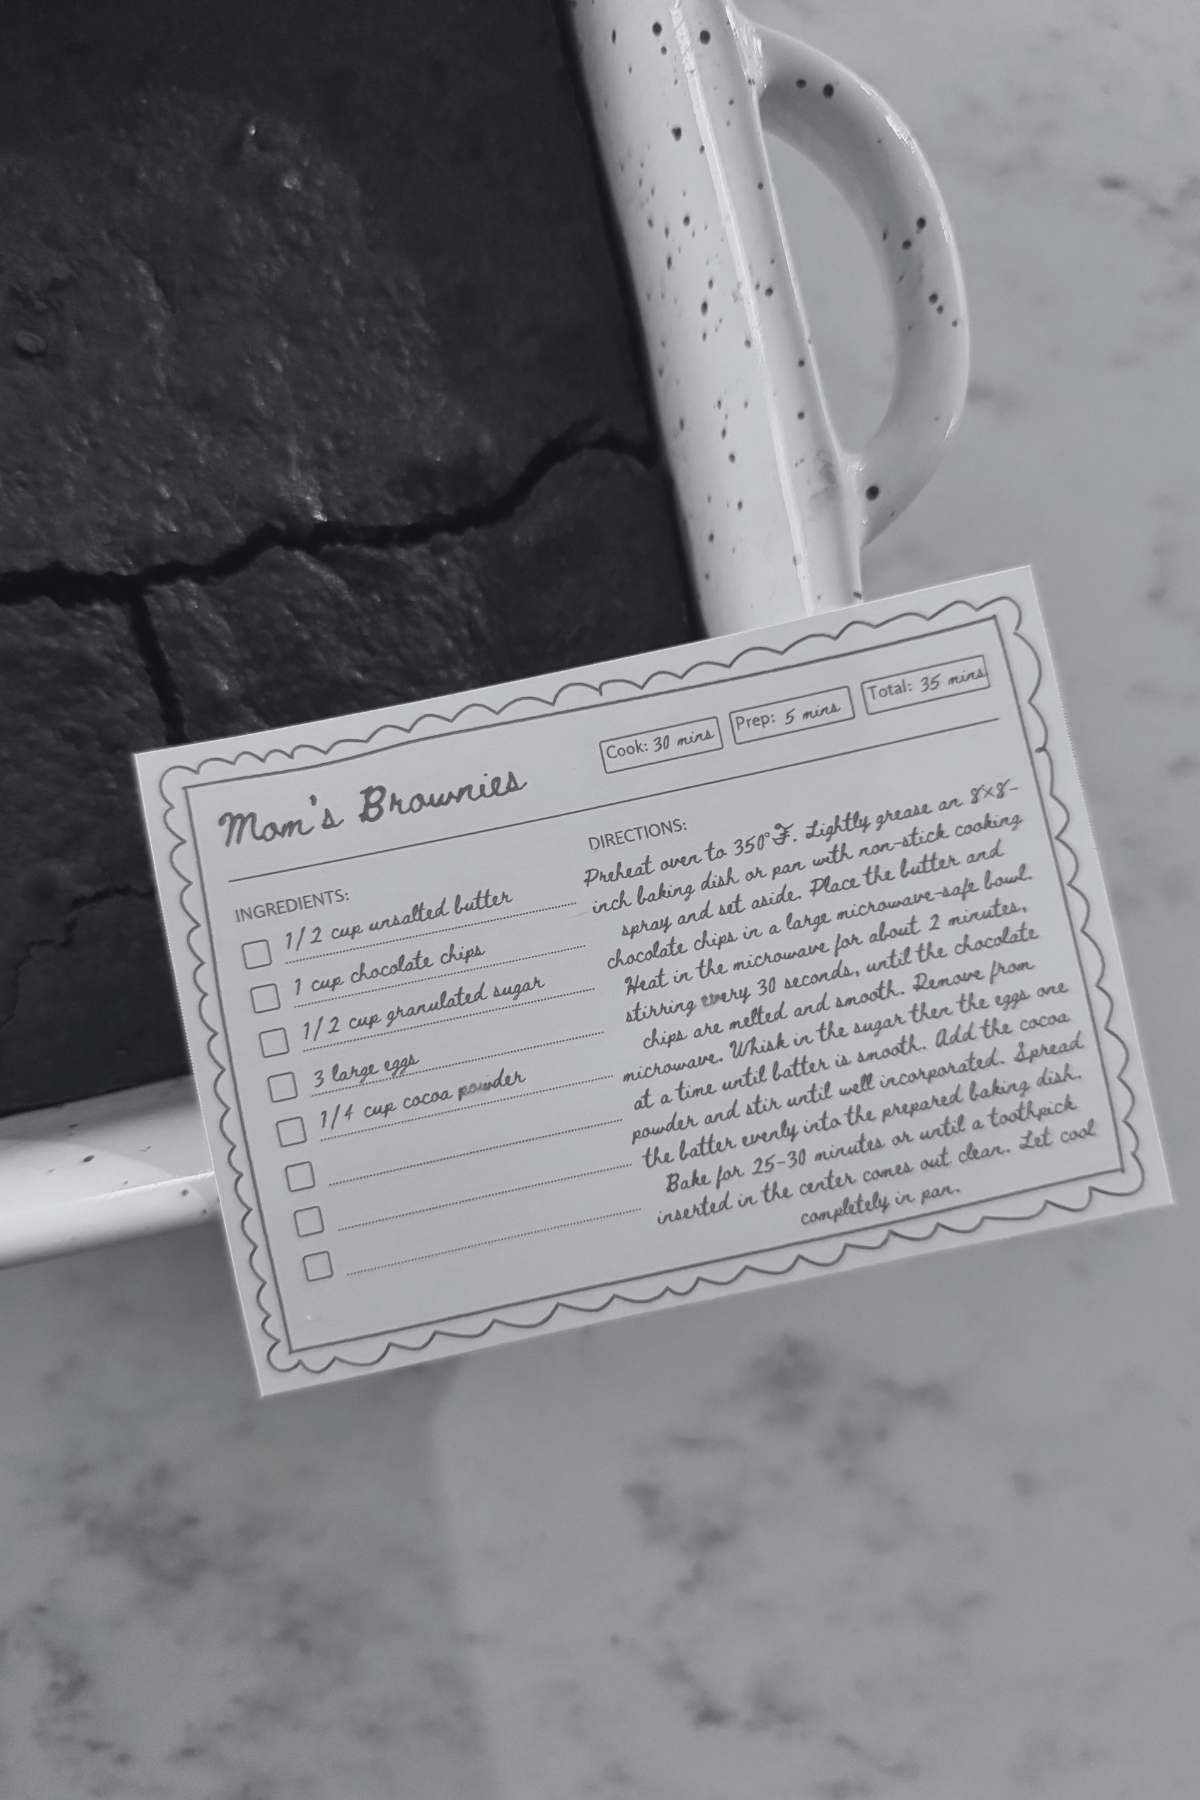 Mom's Brownies
Cook: 30 mins
Prep: 5 mins
Total: 35 mins
INGREDIENTS:
1/2 cup unsalted butter
1 cup chocolate chips
1/2 cup granulated sugar
3 large eggs
1/4 cup cocoa powder
DIRECTIONS:
Preheat oven to 350°F. Lightly grease an 8x8-
inch baking dish or pan with non-stick cooking
spray and set aside. Place the butter and
chocolate chips in a large microwave-safe bowl.
Heat in the microwave for about 2 minutes,
stirring every 30 seconds, until the chocolate
chips are melted and smooth. Remove from
microwave. Whisk in the sugar then the eggs one
at a time until batter is smooth. Add the cocoa
powder and stir until well incorporated. Spread
the batter evenly into the prepared baking dish.
Bake for 25-30 minutes or until a toothpick
inserted in the center comes out clean. Let cool
completely in pan.